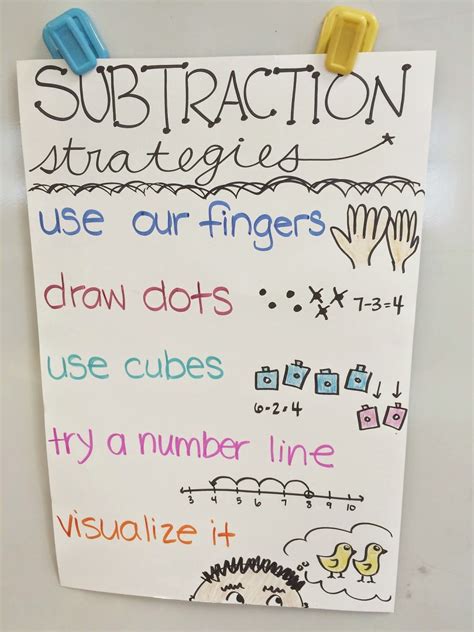 SUBTRACTION
strategies
use our fingers
draw dots
7-3=4
use cubes
6-2=4
try a number line
3 4 5 6 7 8 9 10
visualize it